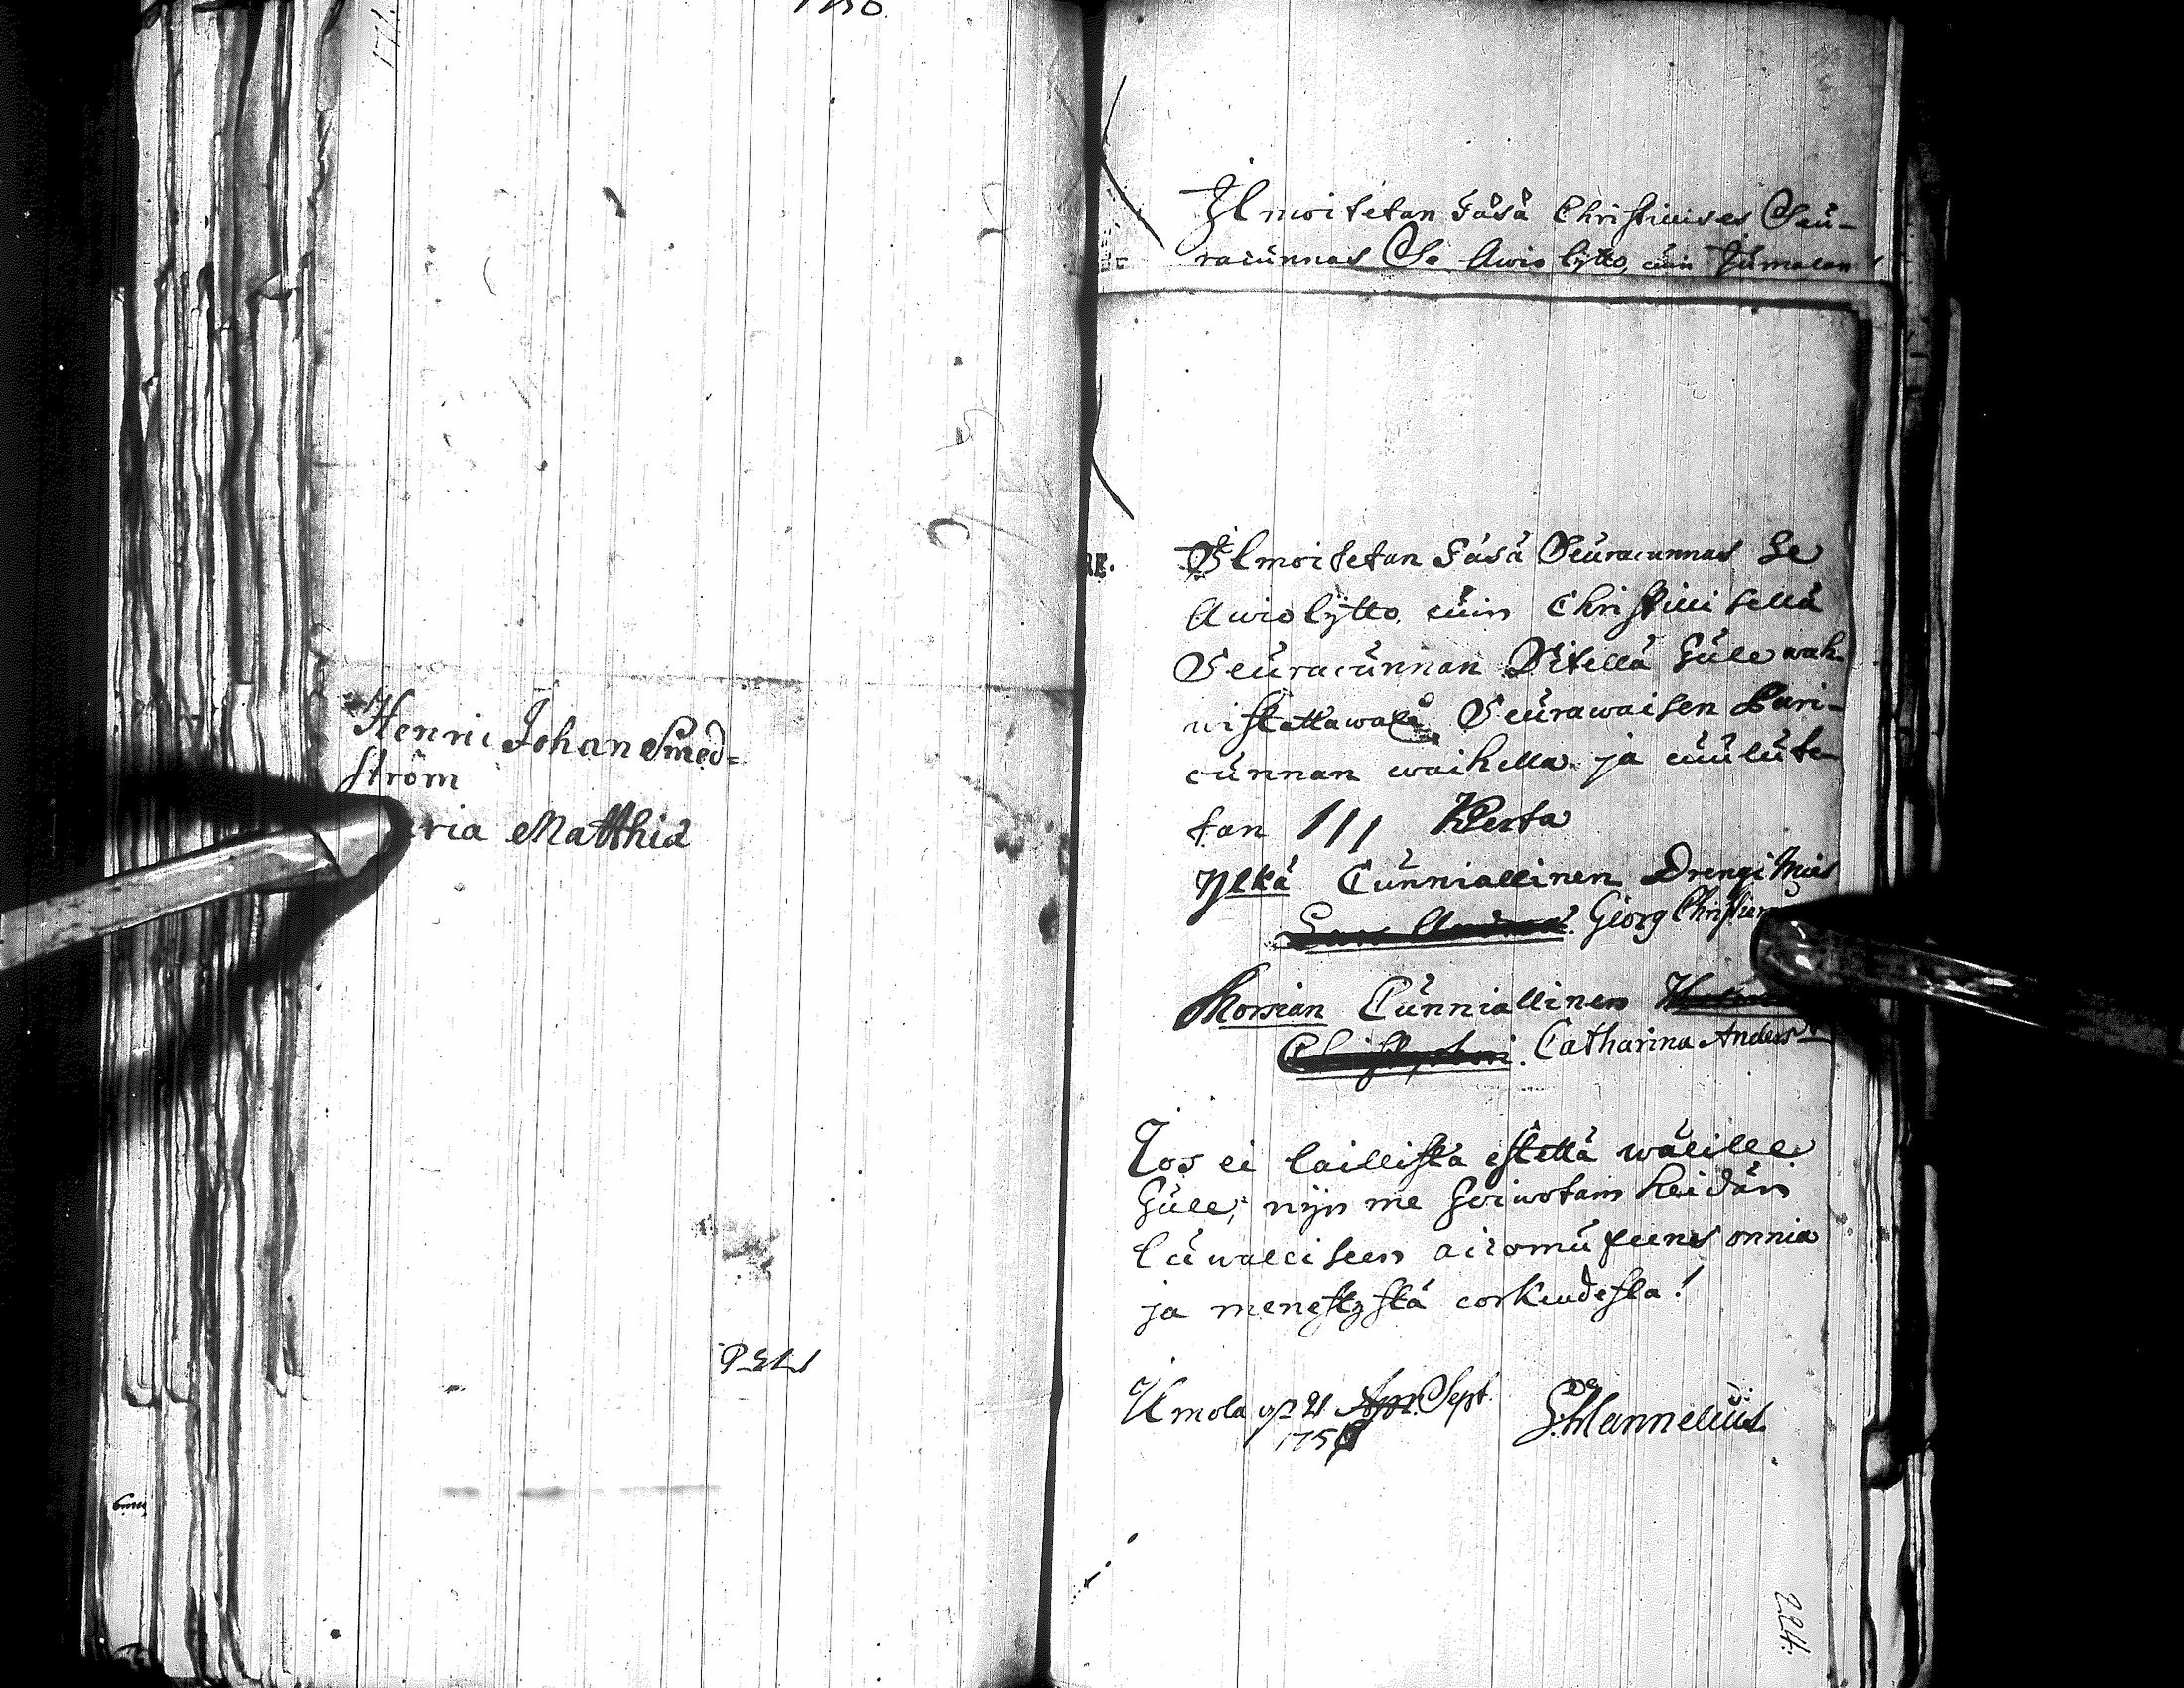 Henric Johan Smed=
ström
ria Matthiæ
Ilmoitetan täsä Christillises Seu-
racunnas Se Awio lijtto, cuin Jumalan
RE.
Ilmoitetan täsä Seuracunnas Se
Awio lijtto, cuin Christillisellä
Seuracunnan Sitellä tule wah-
wistettawaxi Seurawaisen Pari-
cunnan waihella ja cuulute-
tan /// Kerta
Yljkä Cunniallinen Drengi Mies
Georg Christier
Morsian Cunniallinen
Catharina Anders
Jos ei laillista estettä wälille
tule; nijn me toiwotam heidän
luwalliseen aicomuxeens onnia
ja menestystä corkeudesta!
Kimola 21 Sept.
175
S. Mannelius
224.